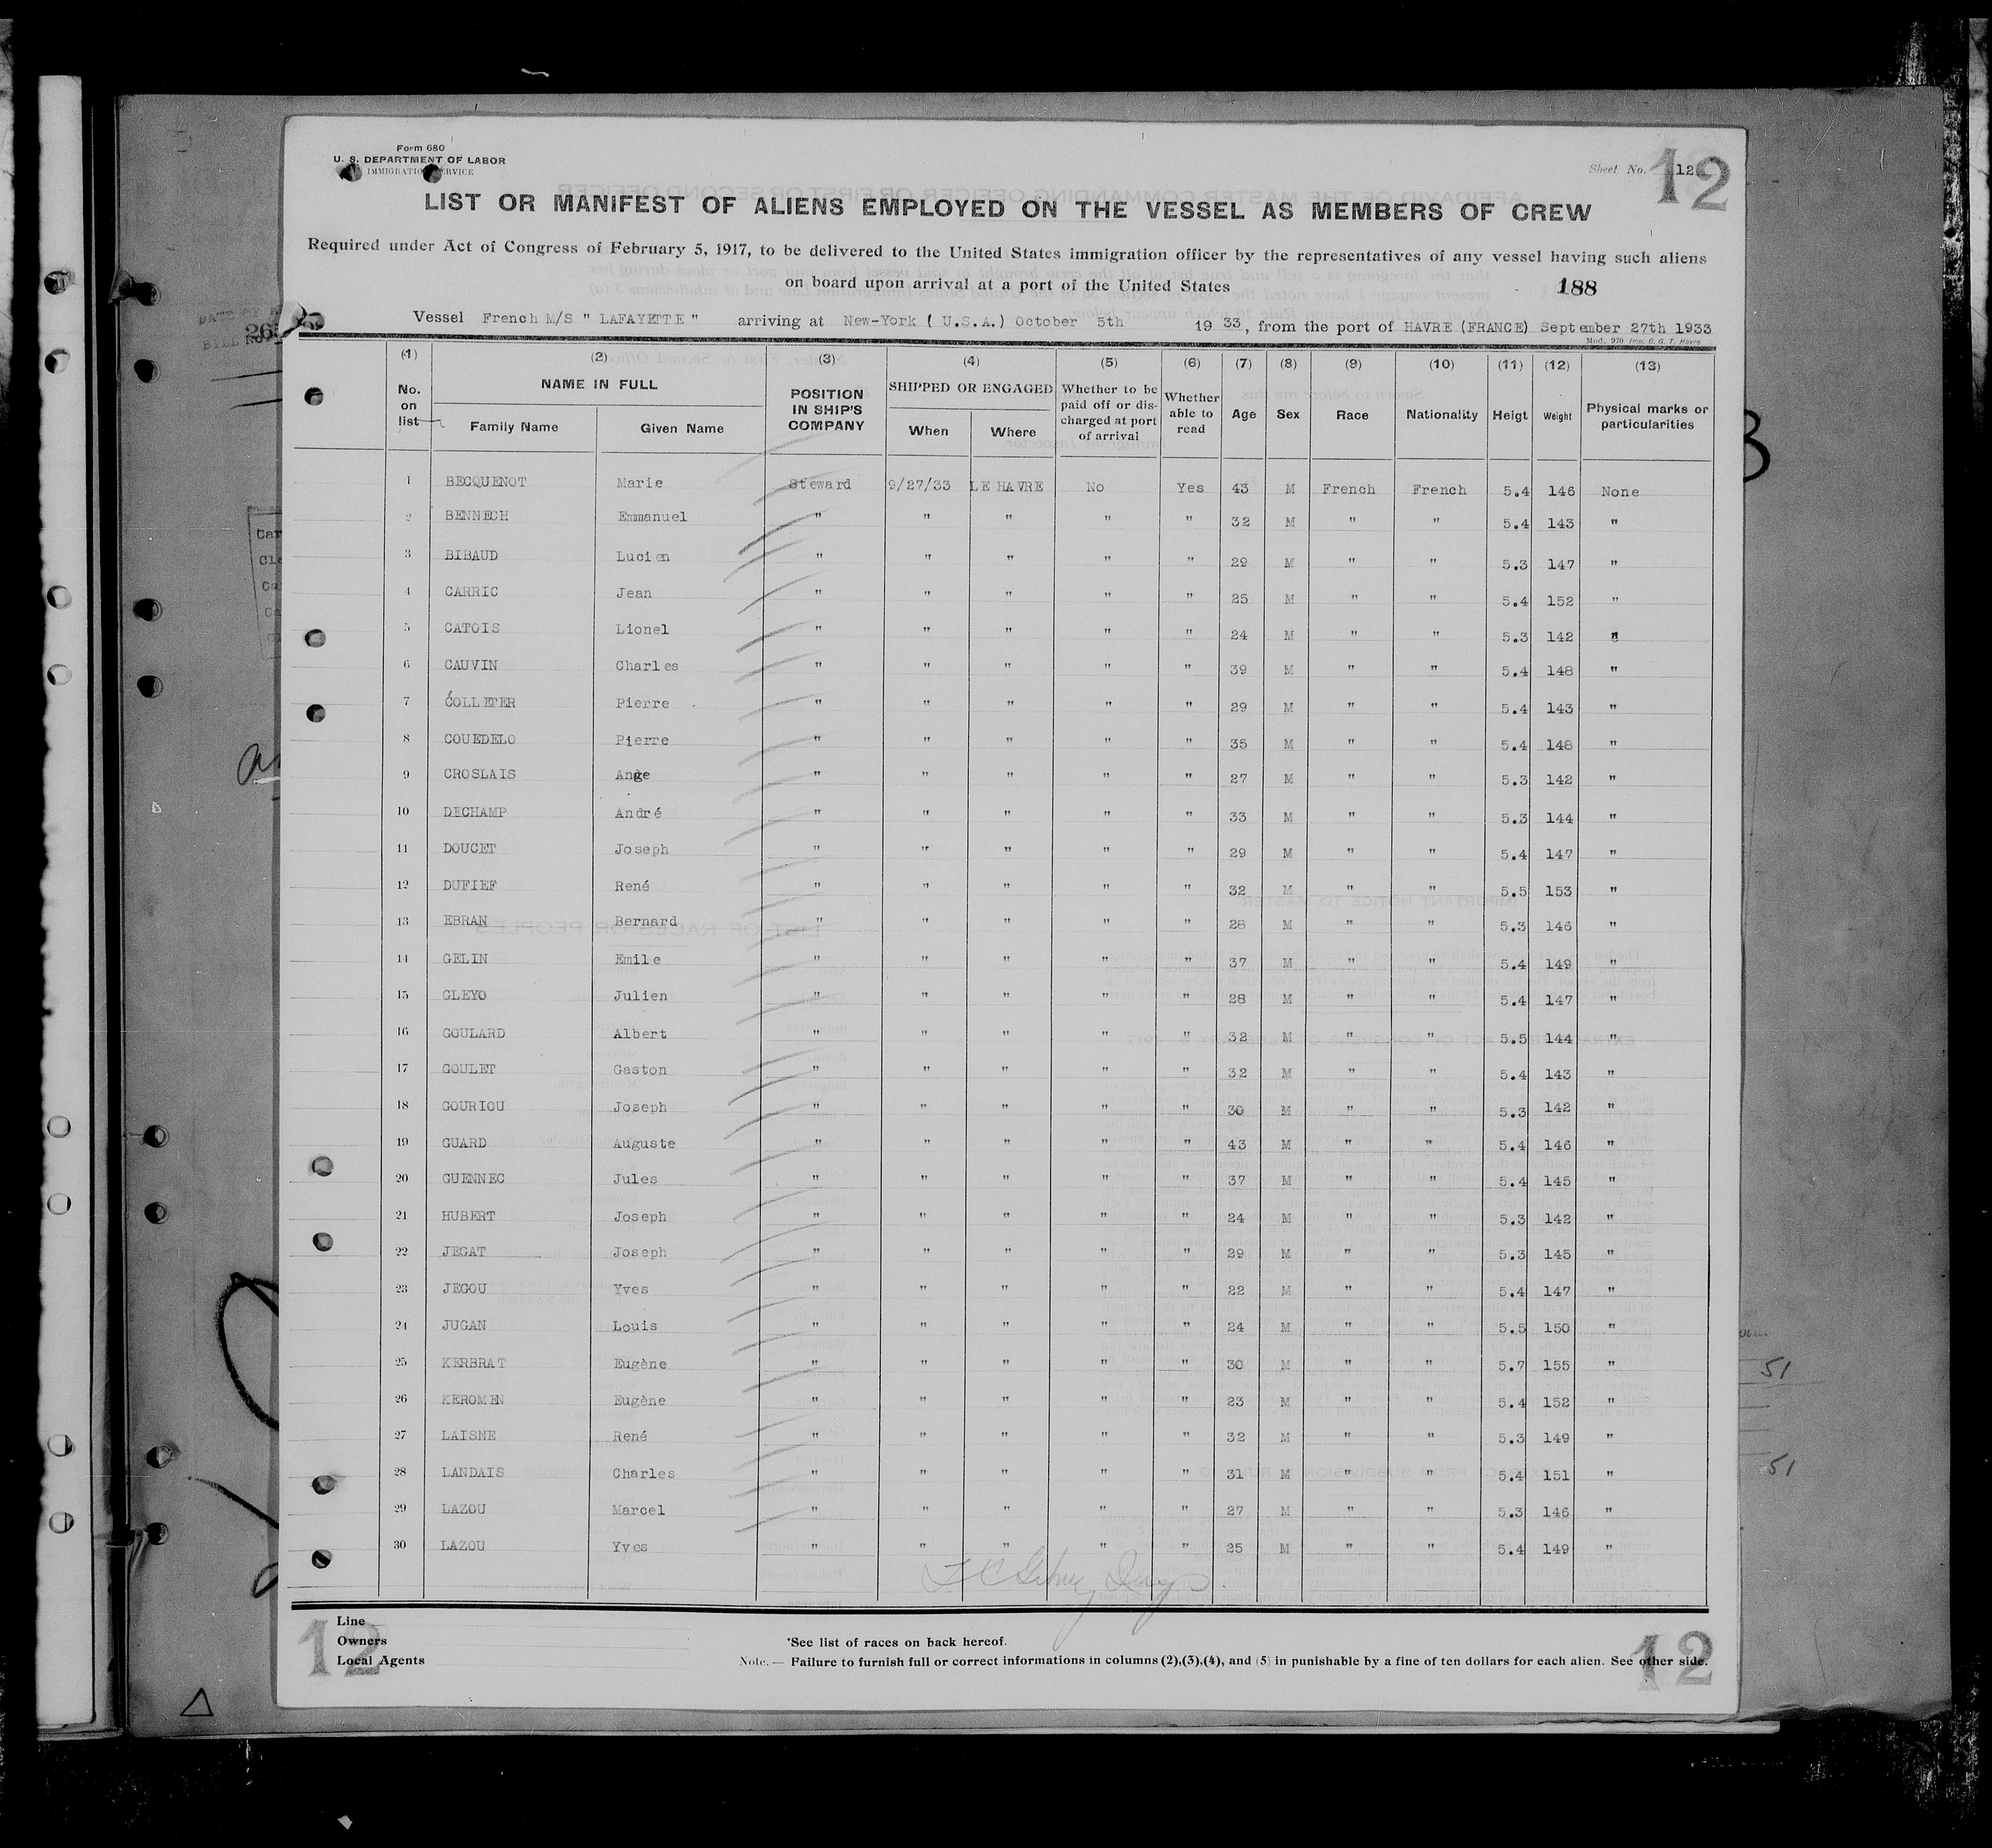 Form 680
U. S. DEPARTMENT OF LABOR
IMMIGRATION SERVICE
Sheet No. 12
12
LIST OR MANIFEST OF ALIENS EMPLOYED ON THE VESSEL AS MEMBERS OF CREW
Required under Act of Congress of February 5, 1917, to be delivered to the United States immigration officer by the representatives of any vessel having such aliens
on board upon arrival at a port of the United States
188
Vessel French M/S " LAFAYETTE " arriving at New-York ( U.S.A.) October 5th 19 33, from the port of HAVRE (FRANCE) September 27th 1933
Mod. 970 Imp. C. G. T. Havre
(1) (2) (3) (4) (5) (6) (7) (8) (9) (10) (11) (12) (13)
No. on list NAME IN FULL Family Name Given Name POSITION IN SHIP'S COMPANY SHIPPED OR ENGAGED When Where Whether to be paid off or discharged at port of arrival Whether able to read Age Sex Race Nationality Heigt Weight Physical marks or particularities
1 BECQUENOT Marie Steward 9/27/33 LE HAVRE No Yes 43 M French French 5.4 146 None
2 BENNECH Emmanuel " " " " " 32 M " " 5.4 143 "
3 BIBAUD Lucien " " " " " 29 M " " 5.3 147 "
4 CARRIC Jean " " " " " 25 M " " 5.4 152 "
5 CATOIS Lionel " " " " " 24 M " " 5.3 142 "
6 CAUVIN Charles " " " " " 39 M " " 5.4 148 "
7 COLLETER Pierre " " " " " 29 M " " 5.4 143 "
8 COUEDELO Pierre " " " " " 35 M " " 5.4 148 "
9 CROSLAIS Ange " " " " " 27 M " " 5.3 142 "
10 DECHAMP André " " " " " 33 M " " 5.3 144 "
11 DOUCET Joseph " " " " " 29 M " " 5.4 147 "
12 DUFIEF René " " " " " 32 M " " 5.5 153 "
13 EBRAN Bernard " " " " " 28 M " " 5.3 146 "
14 GELIN Emile " " " " " 37 M " " 5.4 149 "
15 GLEYO Julien " " " " " 28 M " " 5.4 147 "
16 GOULARD Albert " " " " " 32 M " " 5.5 144 "
17 GOULET Gaston " " " " " 32 M " " 5.4 143 "
18 GOURIOU Joseph " " " " " 30 M " " 5.3 142 "
19 GUARD Auguste " " " " " 43 M " " 5.4 146 "
20 GUENNEC Jules " " " " " 37 M " " 5.4 145 "
21 HUBERT Joseph " " " " " 24 M " " 5.3 142 "
22 JEGAT Joseph " " " " " 29 M " " 5.3 145 "
23 JEGOU Yves " " " " " 22 M " " 5.4 147 "
24 JUGAN Louis " " " " " 24 M " " 5.5 150 "
25 KERBRAT Eugène " " " " " 30 M " " 5.7 155 "
26 KEROMEN Eugène " " " " " 23 M " " 5.4 152 "
27 LAISNE René " " " " " 32 M " " 5.3 149 "
28 LANDAIS Charles " " " " " 31 M " " 5.4 151 "
29 LAZOU Marcel " " " " " 27 M " " 5.3 146 "
30 LAZOU Yves " " " " " 25 M " " 5.4 149 "
51
51
Line
Owners
Local Agents
12
*See list of races on back hereof.
Note. — Failure to furnish full or correct informations in columns (2),(3),(4), and (5) in punishable by a fine of ten dollars for each alien. See other side.
12